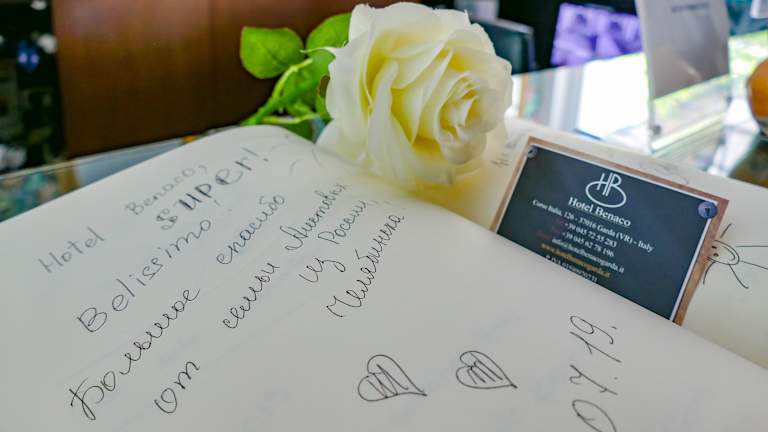 Hotel Benaco,
super!
Belissimo!
Большое спасибо
от семьи
из России,
Челябинска
07.19.
HB
Hotel Benaco
Corso Italia, 126 - 37016 Garda (VR) - Italy
+39 045 72 55 283
+39 045 62 78 196
info@hotelbenacogarda.it
www.hotelbenacogarda.it